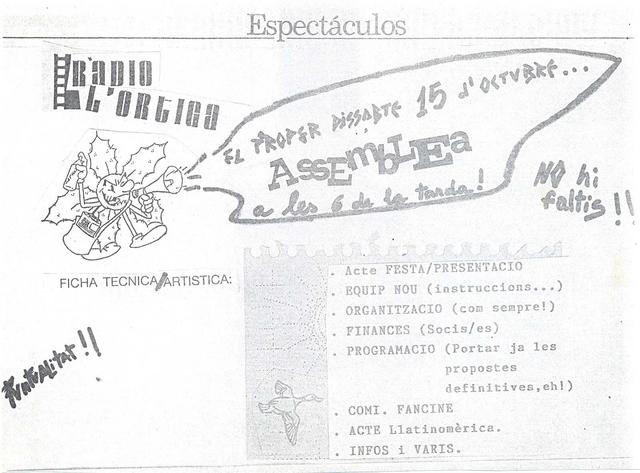 Espectáculos
RÀDIO
L'ORTIGA
EL PROPER DISSABTE 15 d'OCTUBRE...
ASSEMBLEA
a les 6 de la tarda!
NO hi
faltis!!
FICHA TECNICA/ARTISTICA:
. Acte FESTA/PRESENTACIO
. EQUIP NOU (instruccions...)
. ORGANITZACIO (com sempre!)
. FINANCES (Socis/es)
. PROGRAMACIO (Portar ja les
propostes
definitives,eh!)
. COMI. FANCINE
. ACTE Llatinomèrica.
. INFOS i VARIS.
PUNTUALITAT!!